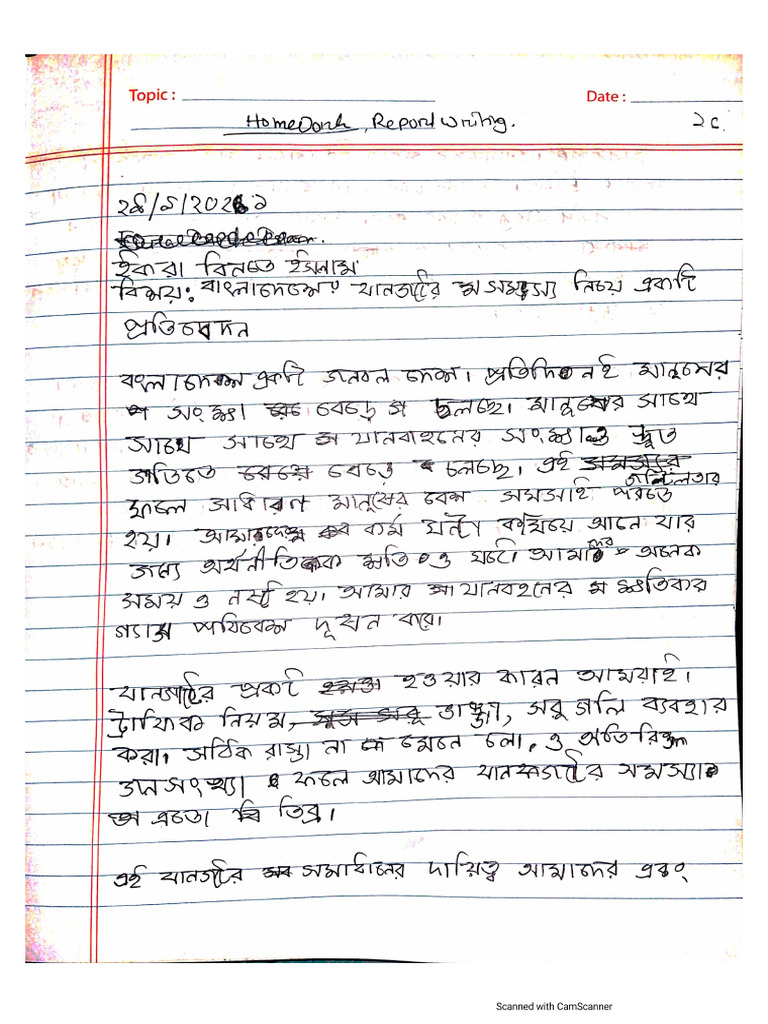 Topic :
Date :
HomeWork, Report Writing.
২৫
ইকরা বিনতে ইসলাম
বিষয়: বাংলাদেশের যানজটের সমস্য নিয়ে একটি
প্রতিবেদন
বংলাদেশ একটি জনবল দেশ। প্রতিদিনই মানুষের
সংক্ষা বেড়ে চলছে। মানুষের সাথে
সাথে সাথে যানবাহনের সংক্ষাও দ্রুত
গতিতে বেড়ে চলেছে। এই জটিলতার
ফলে সাধারণ মানুষের বেশ সমসাই পরতে
হয়। আমাদের কর্ম ঘন্টা কমিয়ে আনে যার
জন্যে অর্থনীতিক ক্ষতিও ঘটে। আমাদের অনেক
সময় ও নষ্ট হয়। আমার যানবহনের ক্ষতিকার
গ্যাস পরিবেশ দূষন করে।
যানজটের প্রকট হওয়ার কারন আমরাই।
ট্রাফিক নিয়ম, ভাঙ্গা, সরু গলি ব্যবহার
করা, সঠিক রাস্তা না মেনে চলা, ও অতিরিক্ত
জনসংখ্যা ফলে আমাদের যানজটের সমস্যা
এতো তিব্র।
এই যানজটের সমাধানের দায়িত্ব আমাদের এবং
Scanned with CamScanner